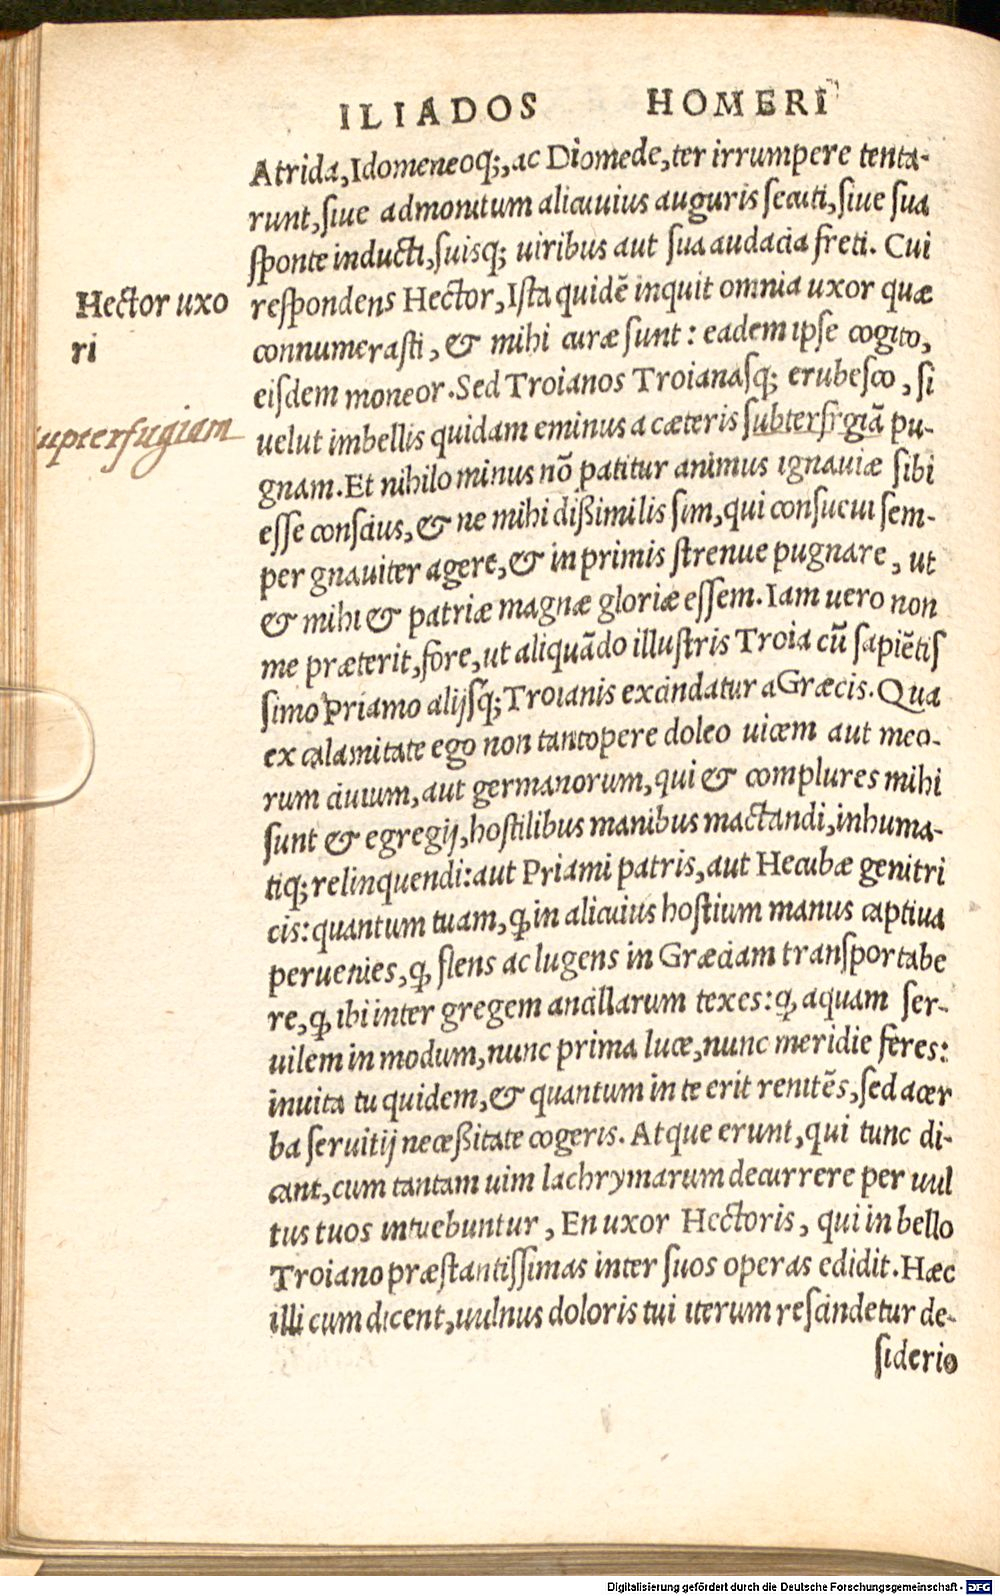 ILIADOS HOMERI
Atrida,Idomeneoq;,ac Diomede,ter irrumpere tenta-
runt,ſiue admonitum alicuiuius auguris ſecuti,ſiue ſua
ſponte inducti,ſuisq; uiribus aut ſua audacia freti. Cui
Hector uxo
ri
reſpondens Hector,Iſta quidē inquit omnia uxor quæ
connumeraſti, & mihi curæ ſunt: eadem ipſe cogito,
eiſdem moneor.Sed Troianos Troianaſq; erubeſco, ſi
upterfugiam
uelut imbellis quidam eminus a cæteris ſubterfrgiā pu-
gnam.Et nihilo minus nō patitur animus ignauiæ ſibi
eſſe conſcius,& ne mihi dißimilis ſim,qui conſueui ſem-
per gnauiter agere,& in primis ſtrenue pugnare, ut
& mihi & patriæ magnæ gloriæ eſſem.Iam uero non
me præterit,fore,ut aliquādo illuſtris Troia cū ſapiētiſ
ſimo Priamo alijſq;Troianis excindatur a Græcis.Qua
ex calamitate ego non tantopere doleo uicem aut meo-
rum ciuium,aut germanorum,qui & complures mihi
ſunt & egregij,hoſtilibus manibus mactandi,inhuma-
tiq;relinquendi:aut Priami patris,aut Hecubæ genitri
cis:quantum tuam,ꝙ in alicuius hoſtium manus captiua
peruenies,ꝙ flens ac lugens in Græciam tranſportabe
re,ꝙ ibi inter gregem ancillarum texes:ꝙ aquam ſer-
uilem in modum,nunc prima luce,nunc meridie feres:
inuita tu quidem,& quantum in te erit renitēs,ſed acer
ba ſeruitij neceßitate cogeris. Atque erunt,qui tunc di-
cant,cum tantam uim lachrymarum decurrere per uul
tus tuos intuebuntur, En uxor Hectoris, qui in bello
Troiano præſtantiſſimas inter ſuos operas edidit.Hæc
illi cum dicent,uulnus doloris tui iterum reſcindetur de-
ſiderio
Digitalisierung gefördert durch die Deutsche Forschungsgemeinschaft - DFG